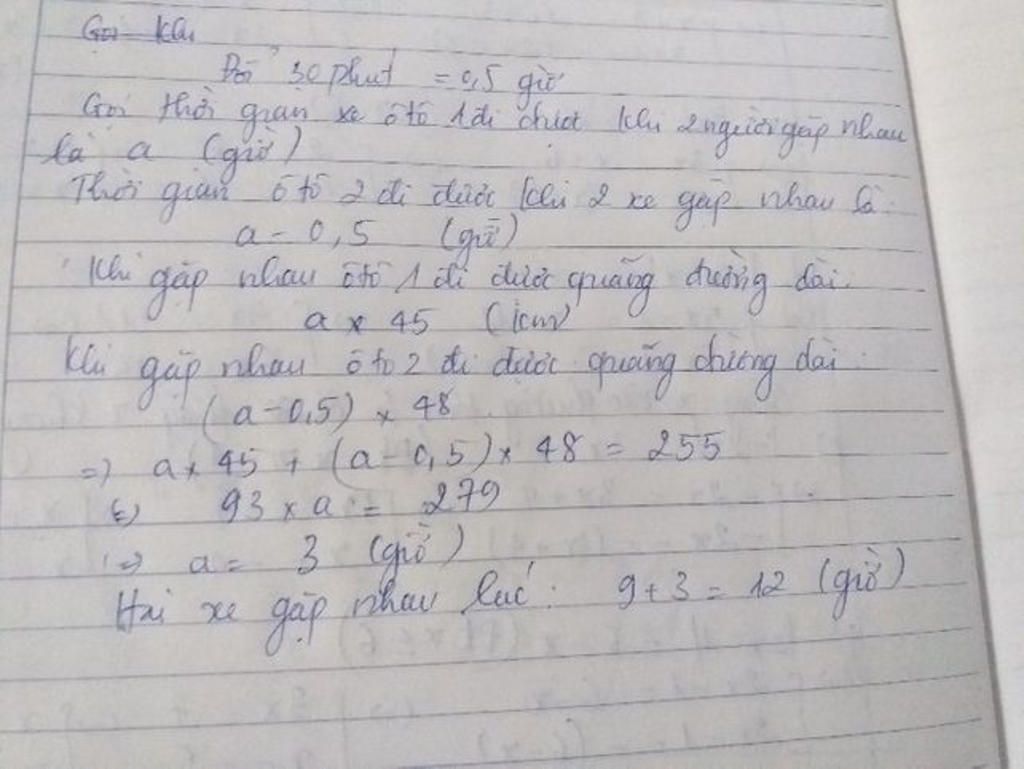 Gọi khi
Đổi 30 phút = 0,5 giờ
Gọi thời gian xe ô tô 1 đi được khi 2 người gặp nhau
là a (giờ)
Thời gian ô tô 2 đi được khi 2 xe gặp nhau là:
a - 0,5 (giờ)
Khi gặp nhau ô tô 1 đi được quãng đường dài:
a x 45 (km)
Khi gặp nhau ô tô 2 đi được quãng đường dài:
(a - 0,5) x 48
=> a x 45 + (a - 0,5) x 48 = 255
<=> 93 x a = 279
=> a = 3 (giờ)
Hai xe gặp nhau lúc: 9 + 3 = 12 (giờ)